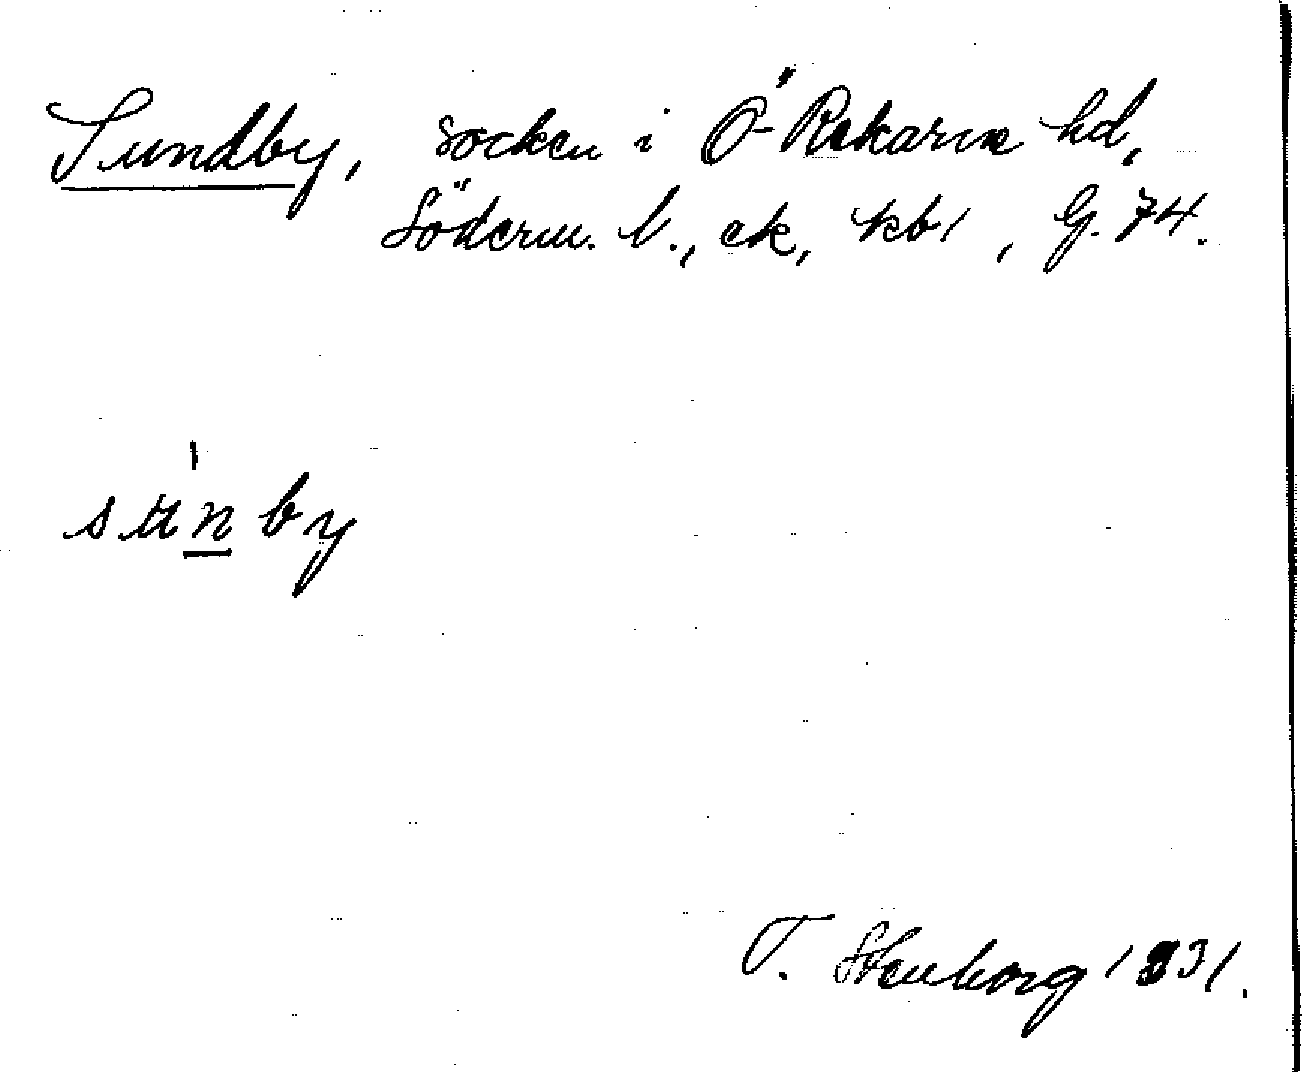 Sundby, socken i Ö Rekarne hd,
Söderm. l., ek, kbl, G. 74.
sunby
T. Stenborg 1931.